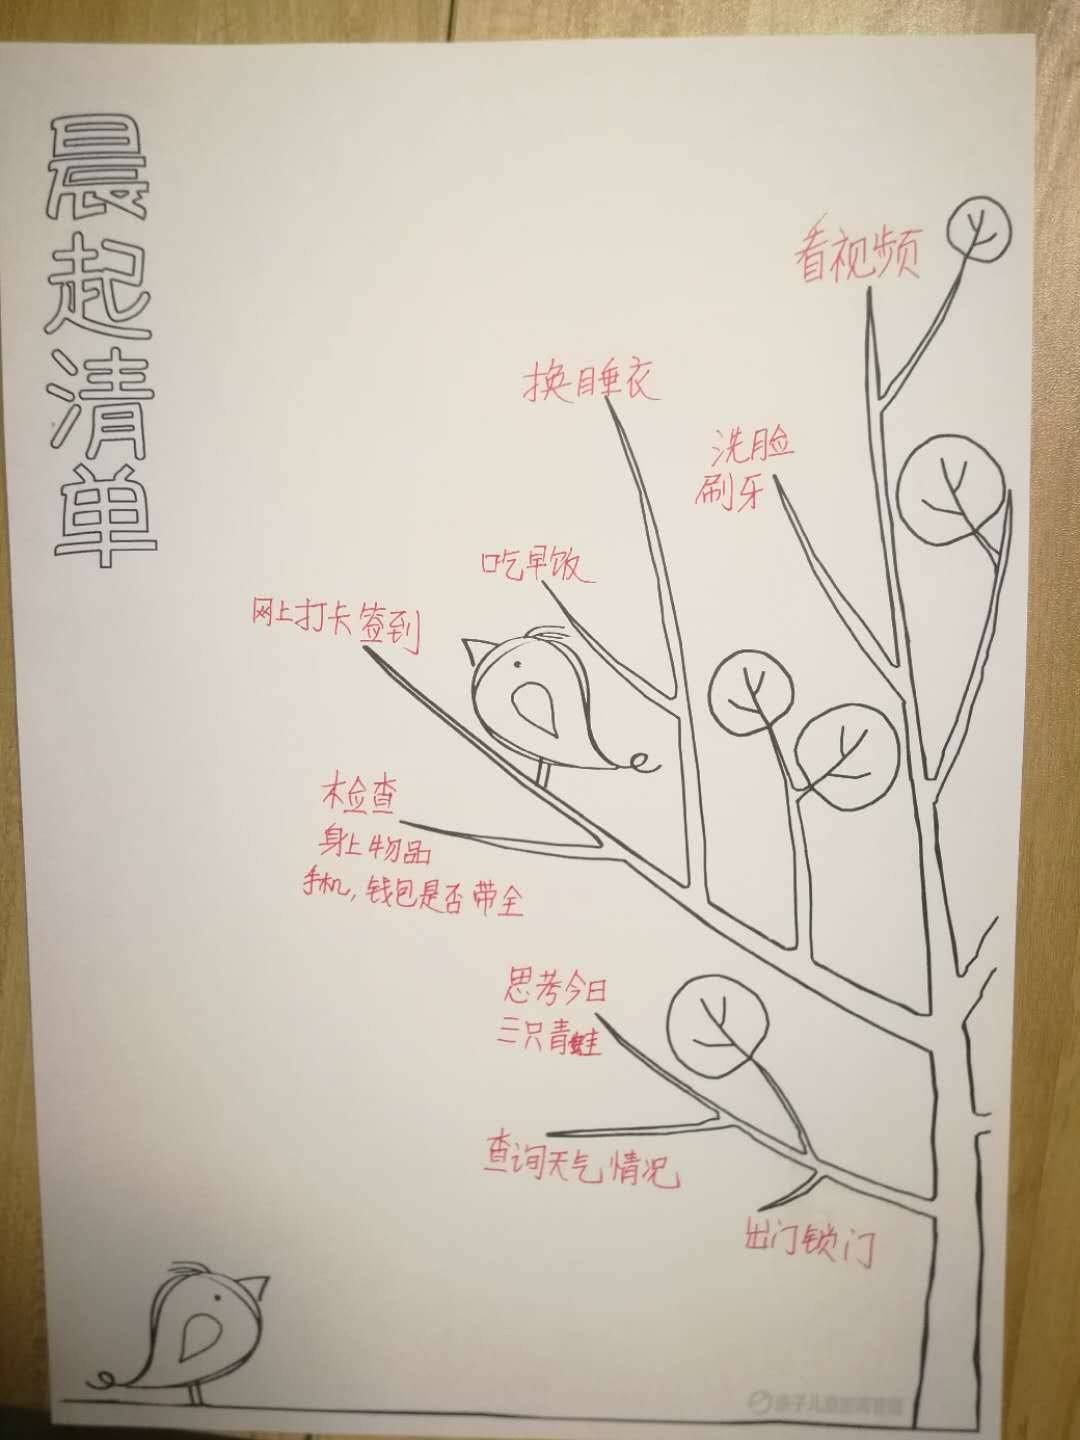 晨起清单
看视频
换睡衣
洗脸
刷牙
吃早饭
网上打卡签到
检查
身上物品
手机,钱包是否带全
思考今日
三只青蛙
查询天气情况
出门锁门